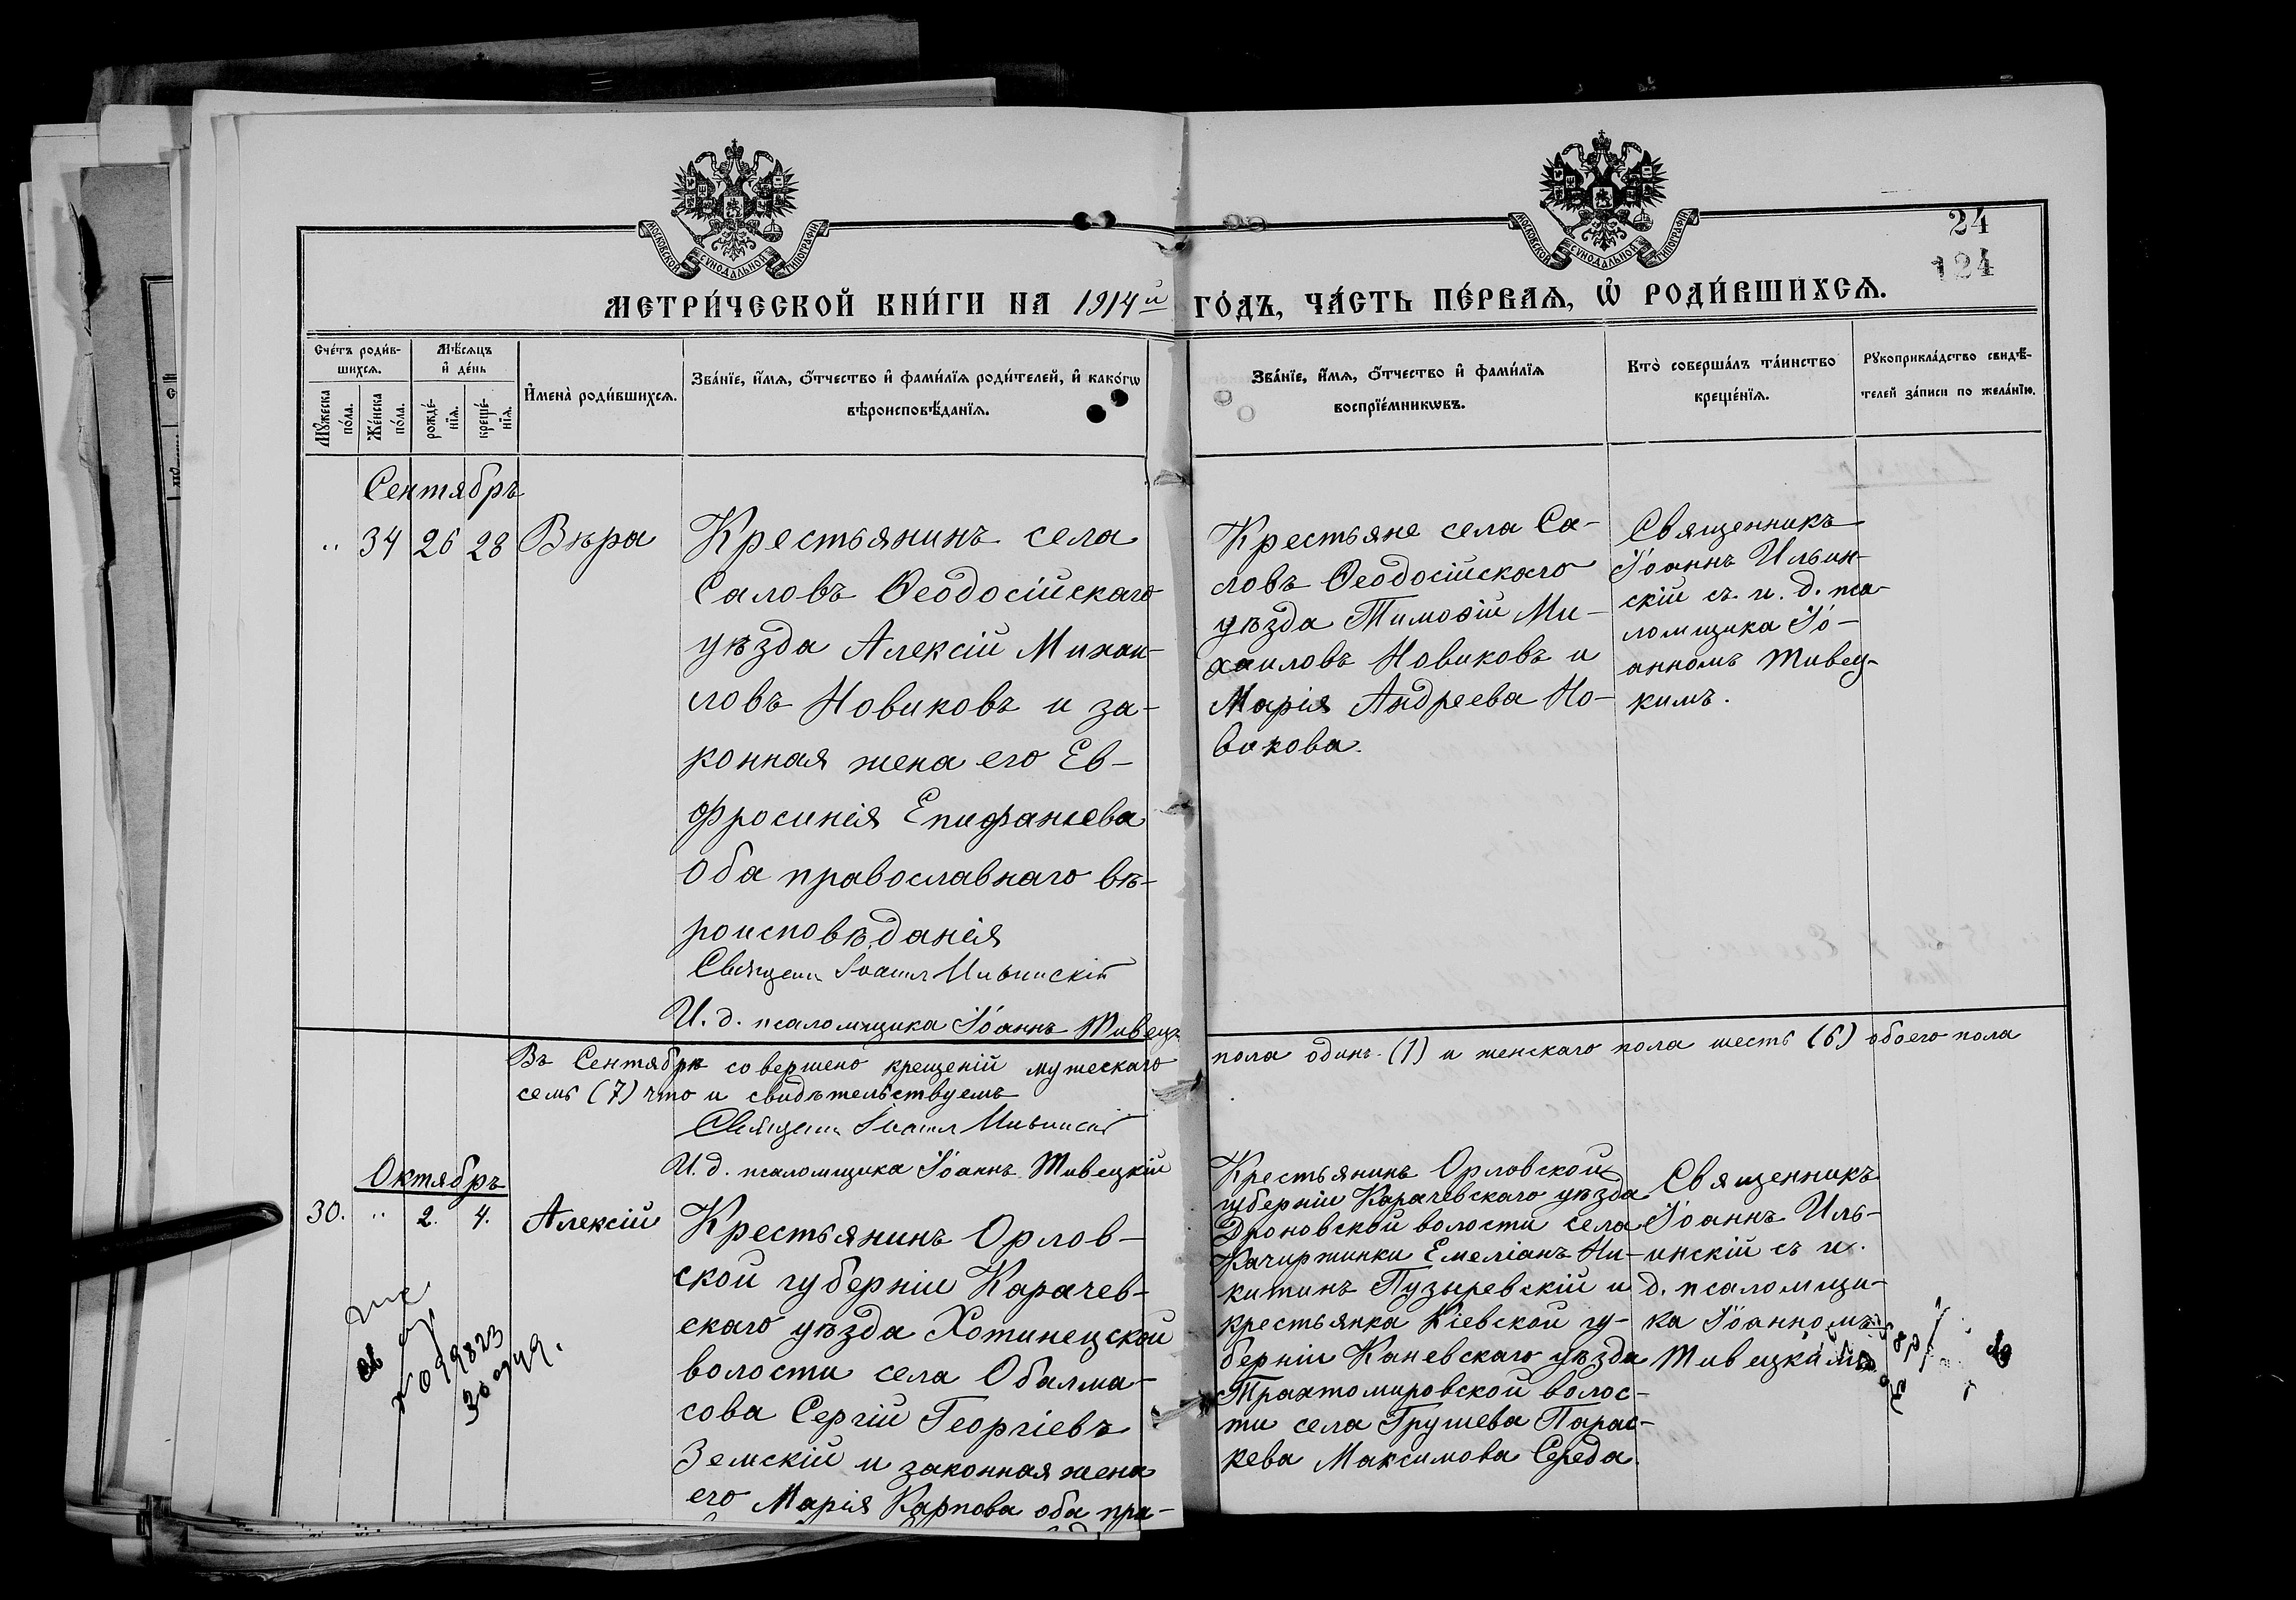 МОСКОВСКОЙ СѴНОДАЛЬНОЙ ТИПОГРАФІИ
МОСКОВСКОЙ СѴНОДАЛЬНОЙ ТИПОГРАФІИ
24
124
МЕТРИ́ЧЕСКОЙ КНИ́ГИ НА 1914й ГО́ДЪ, ЧА́СТЬ ПЕ́РВАѦ, Ѡ РОДИ́ВШИХСѦ.
Сче́тъ роди́в-
шихсѧ.
Мꙋ́жеска по́ла.
Же́нска по́ла.
Мѣ́сѧцъ
и҆ де́нь
рожде́-
нїѧ.
креще́-
нїѧ.
И҆мена̀ роди́вшихсѧ.
Зва́нїе, и҆́мѧ, ѻ҆́тчество и҆ фами́лїѧ роди́телей, и҆ како́гѡ
вѣроисповѣ́данїѧ.
Зва́нїе, и҆́мѧ, ѻ҆́тчество и҆ фами́лїѧ
воспрїе́мникѡвъ.
Кто̀ соверша́лъ та́инство
креще́нїѧ.
Рꙋкоприкла́дство свидѣ́-
телей за́писи по жела́нїю.
Сентябрь
" 34 26 28 Вѣра
Крестьянинъ села
Саловъ Ѳеодосійскаго
уѣзда Алексій Михаи-
ловъ Новиковъ и за-
конная жена его Ев-
фросинія Епифаньева
оба православнаго вѣ-
роисповѣданія
Священ Іоаннъ Ильинскій
И. д. псаломщика Іоаннъ Тивецк
Крестьяне села Са-
ловъ Ѳеодосійскаго
уѣзда Тимоѳій Ми-
хаиловъ Новиковъ и
Марія Андреева Но-
викова.
Священникъ
Іоаннъ Ильин-
скій съ и. д. пса-
ломщика Іо-
анномъ Тивец-
кимъ.
Въ Сентябрѣ совершено крещеній мужескаго пола одинъ (1) и женскаго пола шесть (6) обоего пола
семь (7) что и свидѣтельствуемъ
Священ Іоаннъ Ильинскій
И. д. псаломщика Іоаннъ Тивецкій
Октябрь
30. " 2. 4. Алексій
Крестьянинъ Орлов-
ской губерніи Карачев-
скаго уѣзда Хотинецской
волости села Обалма-
сова Сергій Георгіевъ
Земскій и законная жена
его Марія Карпова оба пра-
Крестьянинъ Орловской
губерніи Карачевскаго уѣзда
Дроновской волости села
Качиржинки Емеліанъ Ни-
китинъ Пузыревскій и
крестьянка Кіевской гу-
берніи Каневскаго уѣзда
Трахтомировской волос-
ти села Грушева Парас-
кева Максимова Середа.
Священникъ
Іоаннъ Иль-
инскій съ и.
д. псаломщи-
ка Іоанномъ
Тивецкимъ